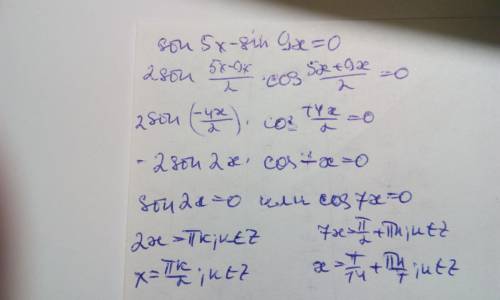 sin 5x - sin 9x = 0
2 sin (5x-9x)/2 · cos (5x+9x)/2 = 0
2 sin (-4x/2) · cos 14x/2 = 0
- 2 sin 2x · cos 7x = 0
sin 2x = 0 или cos 7x = 0
2x = πk; k ∈ Z 7x = π/2 + πn; n ∈ Z
x = πk/2; k ∈ Z x = π/14 + πn/7; n ∈ Z